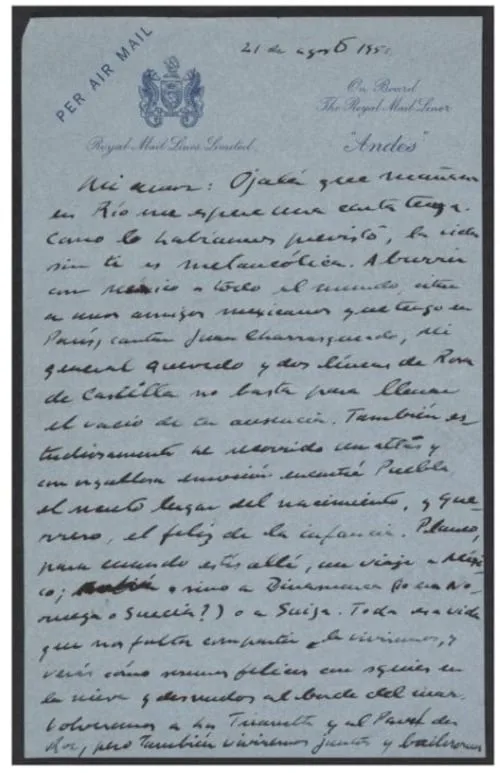 PER AIR MAIL
21 de agosto 195
On Board
The Royal Mail Liner
Royal Mail Lines Limited.
"Andes"
Mi amor: Ojalá que mañana
en Río me espere una carta tuya.
Como lo habíamos previsto, la vida
sin ti es melancólica. Aburrir
con México a todo el mundo, citar
a unos amigos mexicanos que tengo en
París, cantar Juan Charrasqueado, Mi
general Quevedo y dos líneas de Rosa
de Castilla no basta para llenar
el vacío de tu ausencia. También es-
tudiosamente he recorrido un atlas y
con orgullosa emoción encontré Puebla,
el lugar del nacimiento, y Gue-
rrero, el feliz de la infancia. Planeo,
para cuando estés allé, un viaje a Méxi-
co; o sino a Dinamarca (o en No-
ruega o Suecia?) o a Suiza. Toda esa vida
que nos falta compartir la viviremos, y
verás cómo seremos felices con squíes en
la nieve y desnudos al borde del mar.
Volveremos a Las Tiranitas y al Pavo del
pero también viviremos juntos y bailaremos